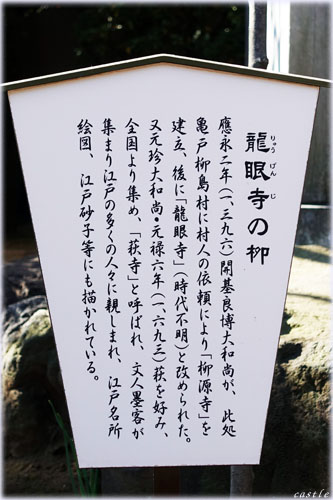 龍眼寺の柳
りゅうげんじ
應永二年(一、三九六)開基良博大和尚が、此処
亀戸柳島村に村人の依頼により「柳源寺」を
建立、後に「龍眼寺」(時代不明)と改められた。
又元珍大和尚・元禄六年(一、六九三)萩を好み、
全国より集め、「萩寺」と呼ばれ、文人墨客が
集まり江戸の多くの人々に親しまれ、江戸名所
絵図、江戸砂子等にも描かれている。
castle